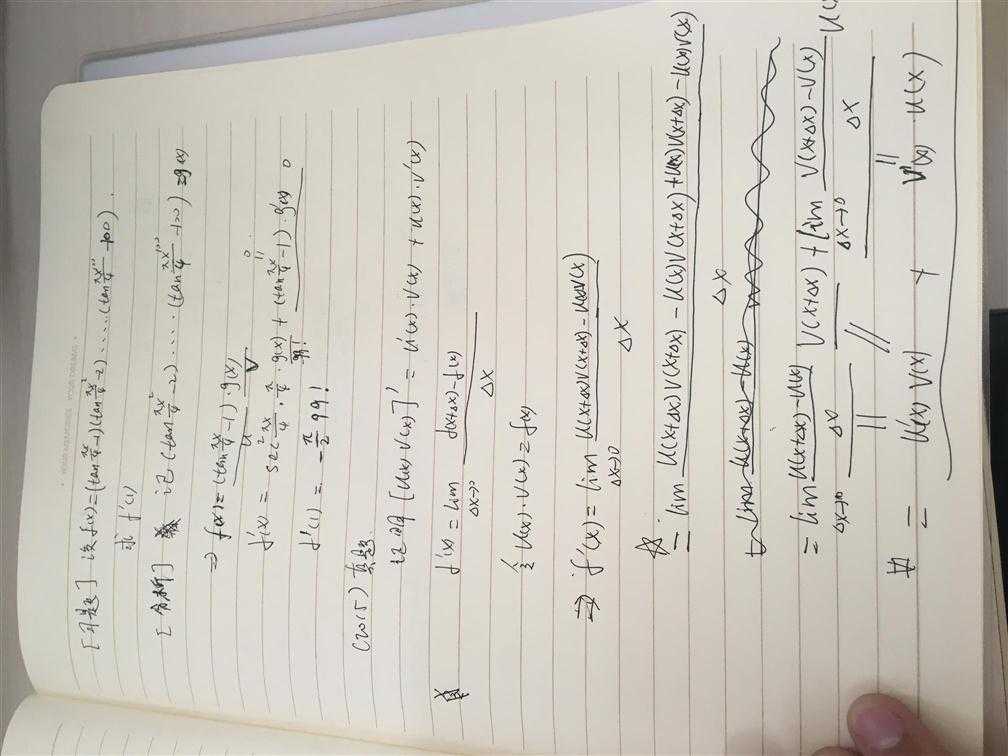 [习题] 设f(x)=(tan πx/4 -1)(tan πx²/4 -2).....(tan πx¹⁰⁰/4 -100).
求f'(1)
[分析] 记(tan πx²/4 -2).....(tan πx¹⁰⁰/4 -100)=g(x)
⇒ f(x)=(tan πx/4 -1)·g(x)
u V
f'(x) = sec² πx/4 · π/4 · g(x) + (tan πx/4 -1)·g'(x)
0 0
99!
f'(1) = -π/2 99!
(2015) 真题
证明 [u(x)·V(x)]' = u'(x)·V(x) + u(x)·V'(x)
f'(x) = lim Δx→0 f(x+Δx)-f(x) / Δx
令 u(x)·V(x)=f(x)
⇒ f'(x)=lim Δx→0 u(x+Δx)V(x+Δx)-u(x)V(x) / Δx
= lim u(x+Δx)V(x+Δx)-u(x)V(x+Δx)+u(x)V(x+Δx)-u(x)V(x) / Δx
= lim Δx→0 u(x+Δx)-u(x) / Δx V(x+Δx) + lim Δx→0 V(x+Δx)-V(x) / Δx
= u'(x) V(x) + V'(x)·u(x)